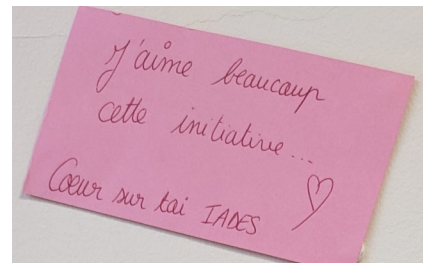 J'aime beaucoup
cette initiative...
Coeur sur tai IADES